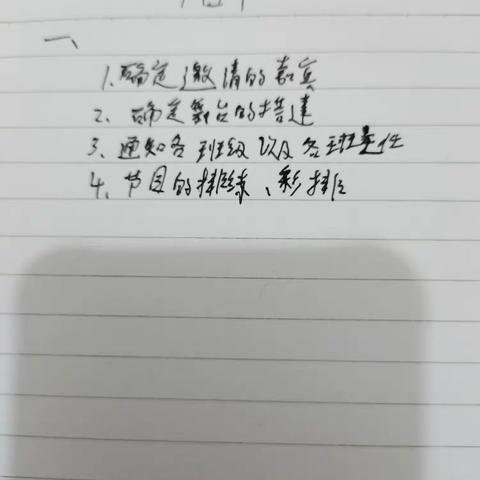 一、
1.确定邀请的嘉宾
2、确定舞台的搭建
3、通知各班级以及各班主任
4、节目的排练、彩排